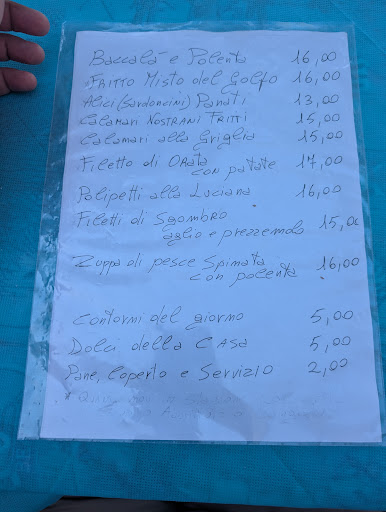 Baccalà e Polenta 16,00
FRITTO Misto del Golfo 16,00
Alici (Sardoncini) Panati 13,00
Calamari NOSTRANI FRITTI 15,00
Calamari alla Griglia 15,00
Filetto di ORata
con patate 17,00
Polipetti alla Luciana 16,00
Filetti di Sgombro
aglio e prezzemolo 15,00
Zuppa di pesce Spinata
con polenta 16,00
Contorni del giorno 5,00
Dolci della CASA 5,00
Pane, Coperto e Servizio 2,00